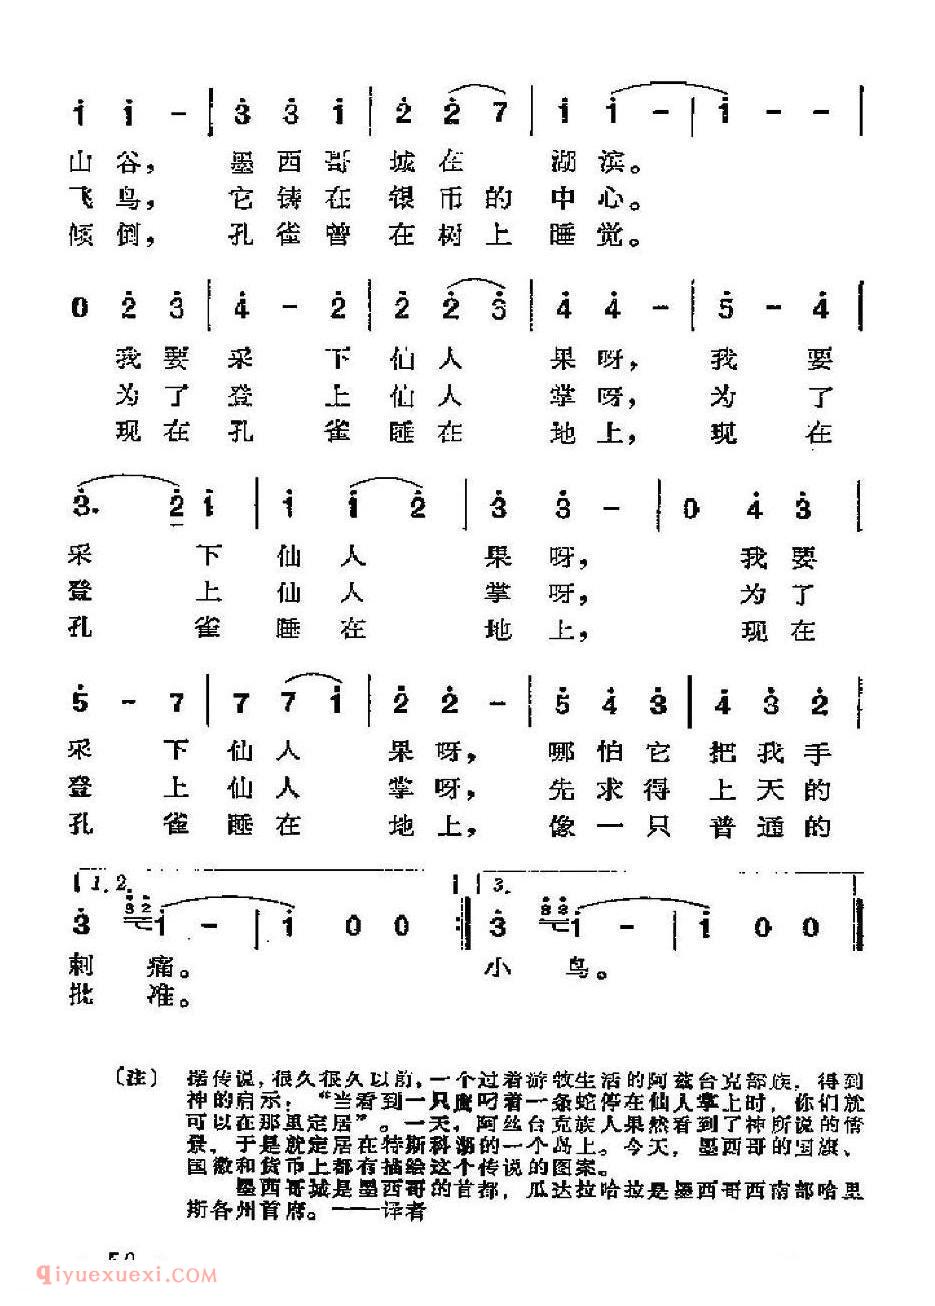 1 1 - | 3 3 1 | 2 2 7 | 1 1 - | 1 - - |
山谷，墨西哥城在湖滨。
飞鸟，它铸在银币的中心。
倾倒，孔雀曾在树上睡觉。
0 2 3 | 4 - 2 | 2 2 3 | 4 4 - | 5 - 4 |
我要采下仙人果呀，我要
为了登上仙人掌呀，为了
现在孔雀睡在地上，现在
3. 2 1 | 1 1 2 | 3 3 - | 0 4 3 |
采下仙人果呀，我要
登上仙人掌呀，为了
孔雀睡在地上，现在
5 - 7 | 7 7 1 | 2 2 - | 5 4 3 | 4 3 2 |
采下仙人果呀，哪怕它把我手
登上仙人掌呀，先求得上天的
孔雀睡在地上，像一只普通的
1.2. 3.
3 3 2 1 - | 1 0 0 :| 3 3 2 1 - | 1 0 0 |
刺痛。小鸟。
批准。
（注） 据传说，很久很久以前，一个过着游牧生活的阿兹台克部族，得到
神的启示：“当看到一只鹰叼着一条蛇停在仙人掌上时，你们就
可以在那里定居”。一天，阿丝台克族人果然看到了神所说的情
景，于是就定居在特斯科湖的一个岛上。今天，墨西哥的国旗、
国徽和货币上都有描绘这个传说的图案。
墨西哥城是墨西哥的首都，瓜达拉哈拉是墨西哥西南部哈里
斯各州首席。——译者
qiyuexuexi.com